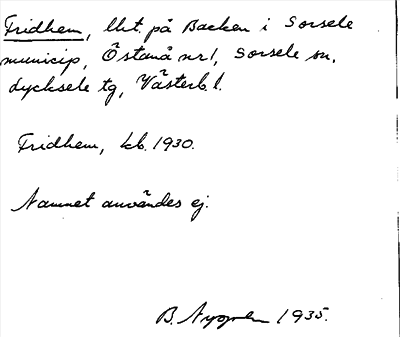 Fridhem, lht. på Backen i Sorsele
municip, Östanå nr 1, Sorsele sn,
Lycksele tg, Västerb. l.
Fridhem, kb. 1930.
Namnet användes ej.
B. Nygren 1935.